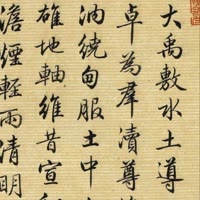 大禹敷水土導
卓為羣瀆尊
油繞甸服土中
雄地軸維昔宣
澹煙輕雨清明